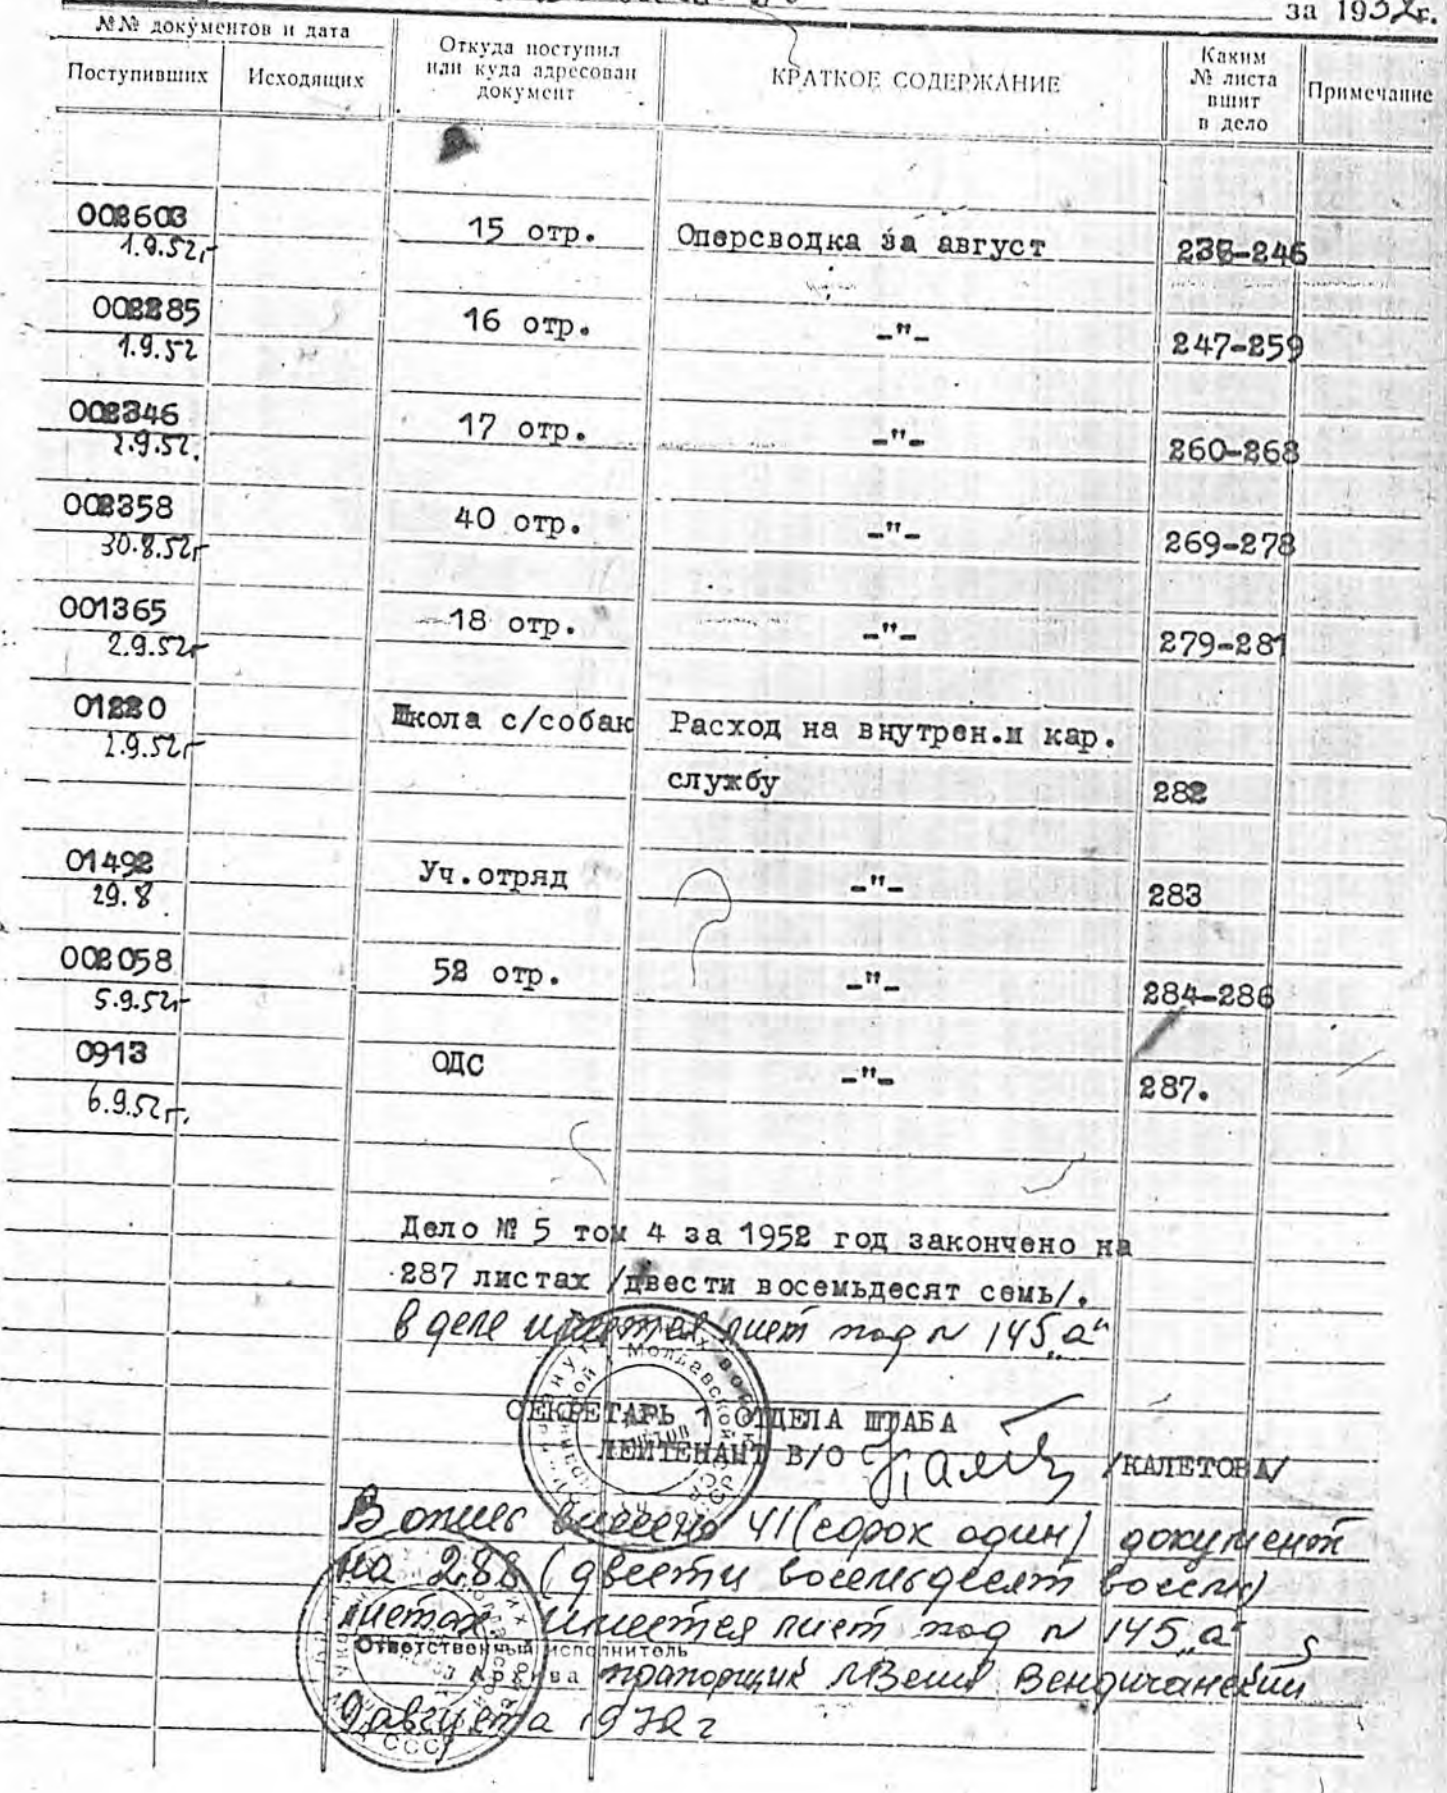 за 1952г.
№№ документов и дата
Поступивших Исходящих
Откуда поступил
или куда адресован
документ
КРАТКОЕ СОДЕРЖАНИЕ
Каким
№ листа
вшит
в дело
Примечание
002603 15 отр. Оперсводка за август 235-246
1.9.52г
002285 16 отр. -"- 247-259
1.9.52
002346 17 отр. -"- 260-268
2.9.52.
002358 40 отр. -"- 269-278
30.8.52г
001365 18 отр. -"- 279-281
2.9.52г
01220 Школа с/собак Расход на внутрен.и кар.
1.9.52г
службу 282
01492 Уч.отряд -"- 283
29.8
002058 52 отр. -"- 284-286
5.9.52г
0913 ОДС -"- 287.
6.9.52г.
Дело № 5 том 4 за 1952 год закончено на
287 листах /двести восемьдесят семь/.
В деле имеется лист под № 145„а"
СЕКРЕТАРЬ 1 ОТДЕЛА ШТАБА
ЛЕЙТЕНАНТ В/О /КАЛЕТОВА/
В опись внесено 41 (сорок один) документ
на 288 (двести восемьдесят восемь)
листах. имеется лист под № 145„а"
Ответственный исполнитель
Архива прапорщик Вендичанский
9 августа 1972 г
Молдавской
СССР